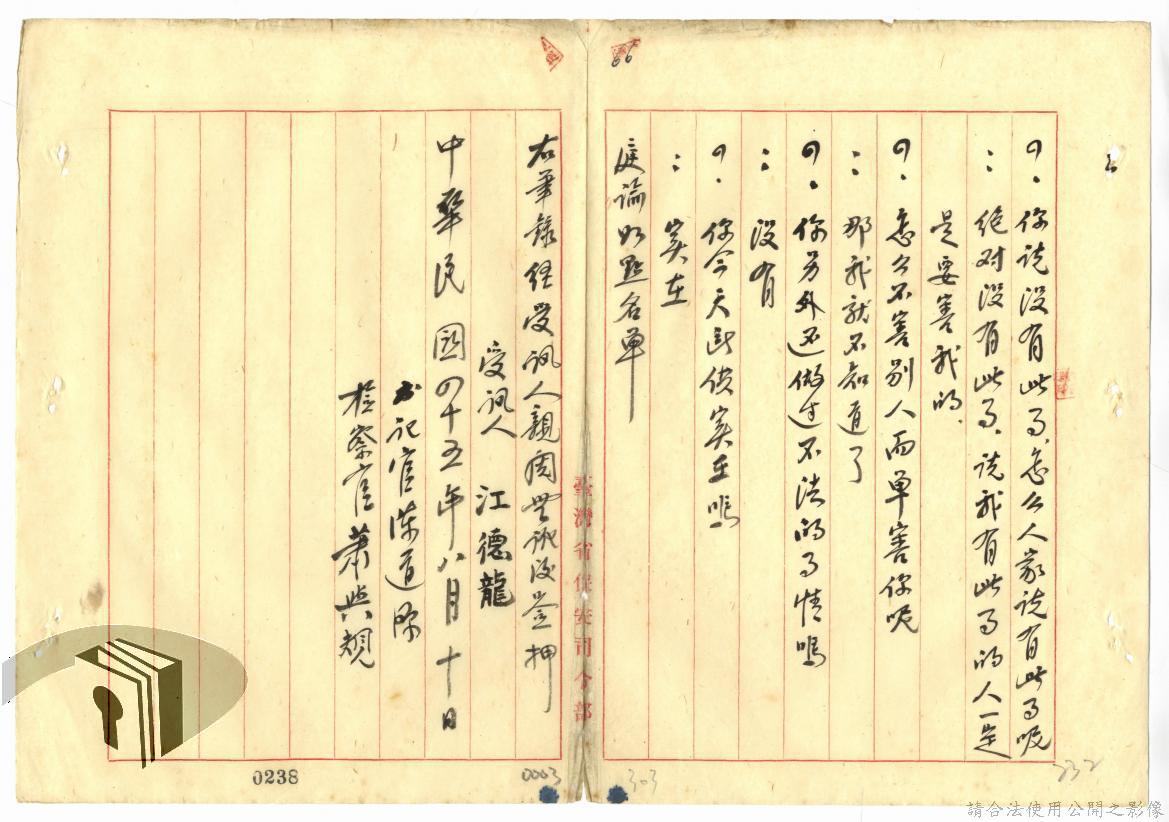 問：你说没有此事，怎么人家说有此事呢
：绝对没有此事，说我有此事的人一定
是要害我的，
問：怎么不害别人而单害你呢
：那我就不知道了
問：你另外还做过不法的事情吗
：没有
問：你今天所供实在吗
：实在
庭諭如點名单
右筆錄经受訊人親閱無訛後签押
受訊人 江德龍
中華民國四十五年八月十日
书记官陈道
檢察官蕭與規
臺灣省保安司令部
66
0238
0003
303
232
請合法使用公開之影像